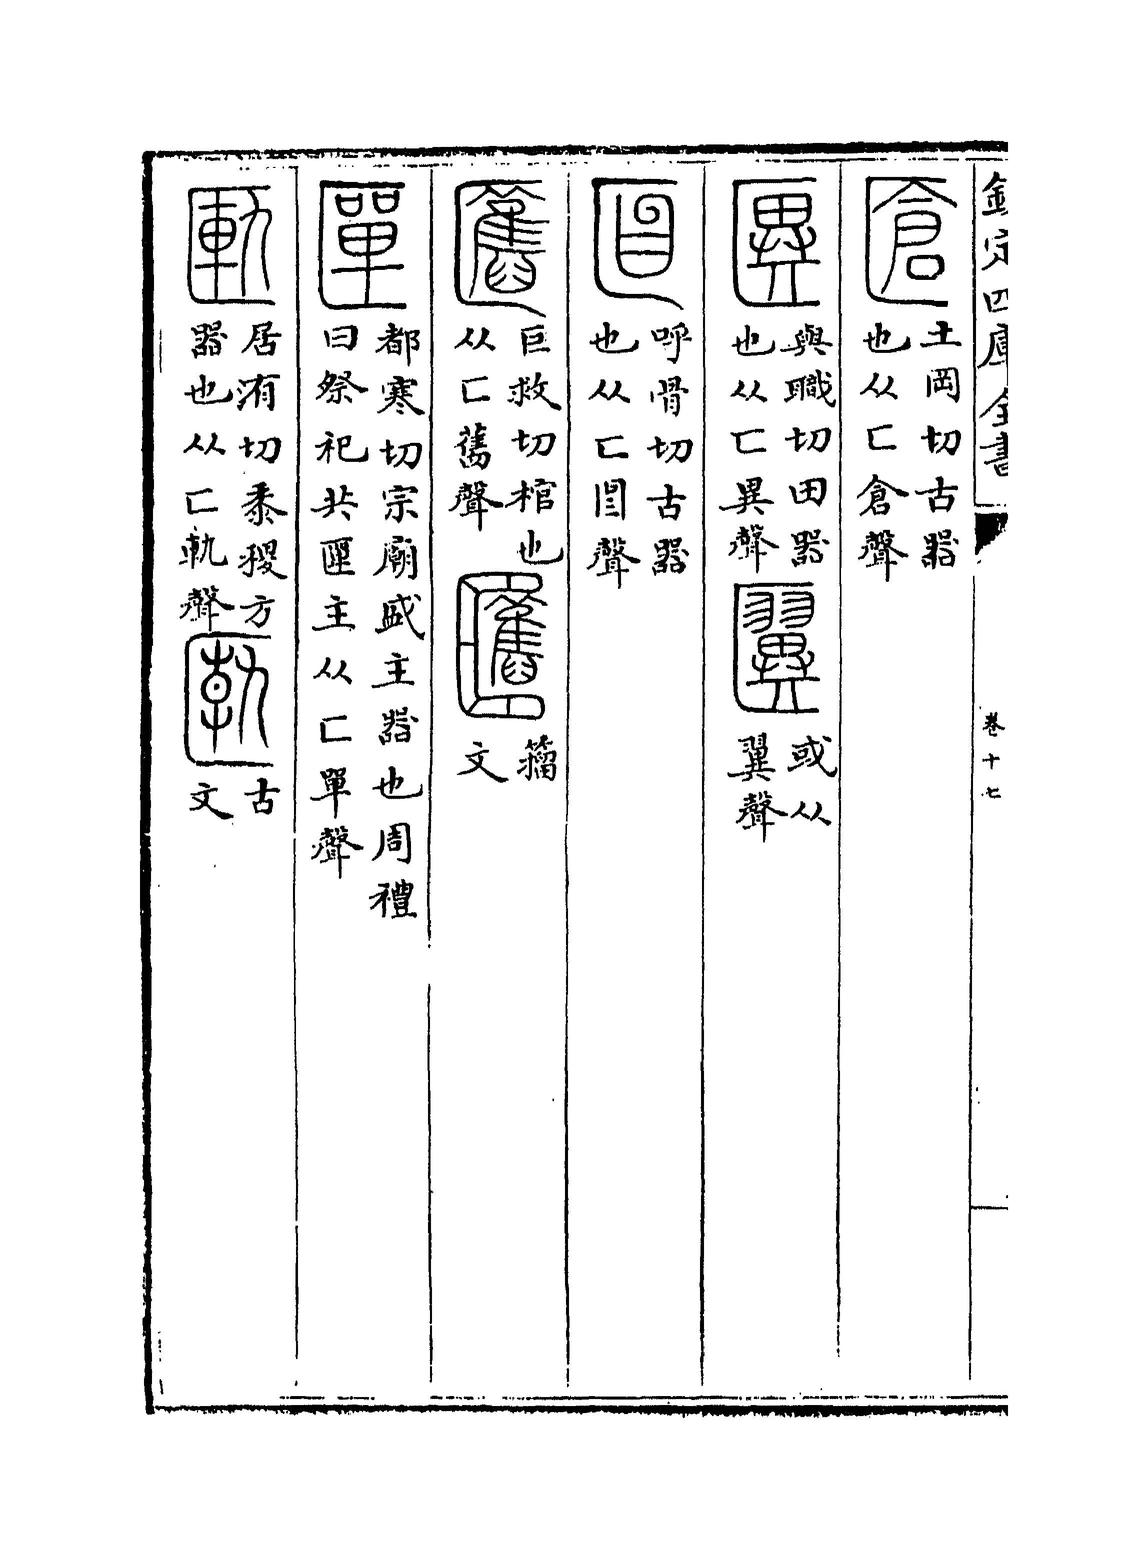 欽定四庫全書
卷十七
匨
土岡切古器
也从匚倉聲
與職切田器
也从匚異聲
或从
翼聲
匫
呼骨切古器
也从匚聲
匶
巨救切棺也
从匚舊聲
籀
文
匰
都寒切宗廟盛主器也周禮
曰祭祀共匰主从匚單聲
匭
居洧切黍稷方
器也从匚軌聲
古
文